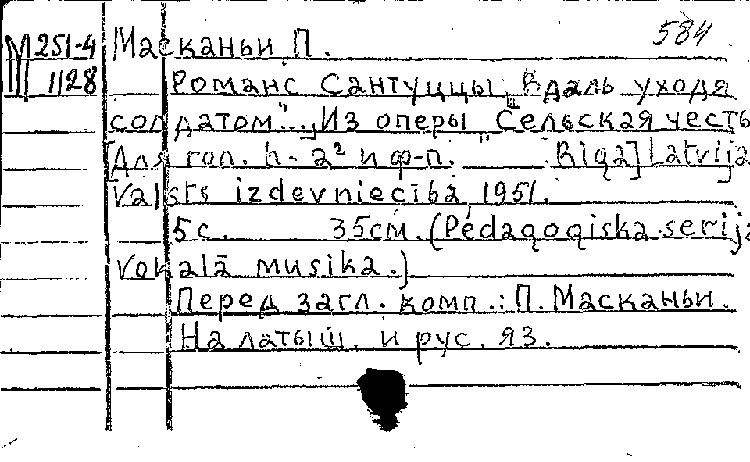 М 251-4 Масканьи П. 584
1128 Романс Сантуццы „Вдаль уходя
солдатом"... Из оперы „Сельская честь
[Для гол. h-a² и ф-п. Riga] Latvija
Valsts izdevniecība, 1951.
5 с. 35см. (Pedagogiska serija
Vokalā musika.)
Перед загл. комп.: П. Масканьи.
На латыш. и рус. яз.